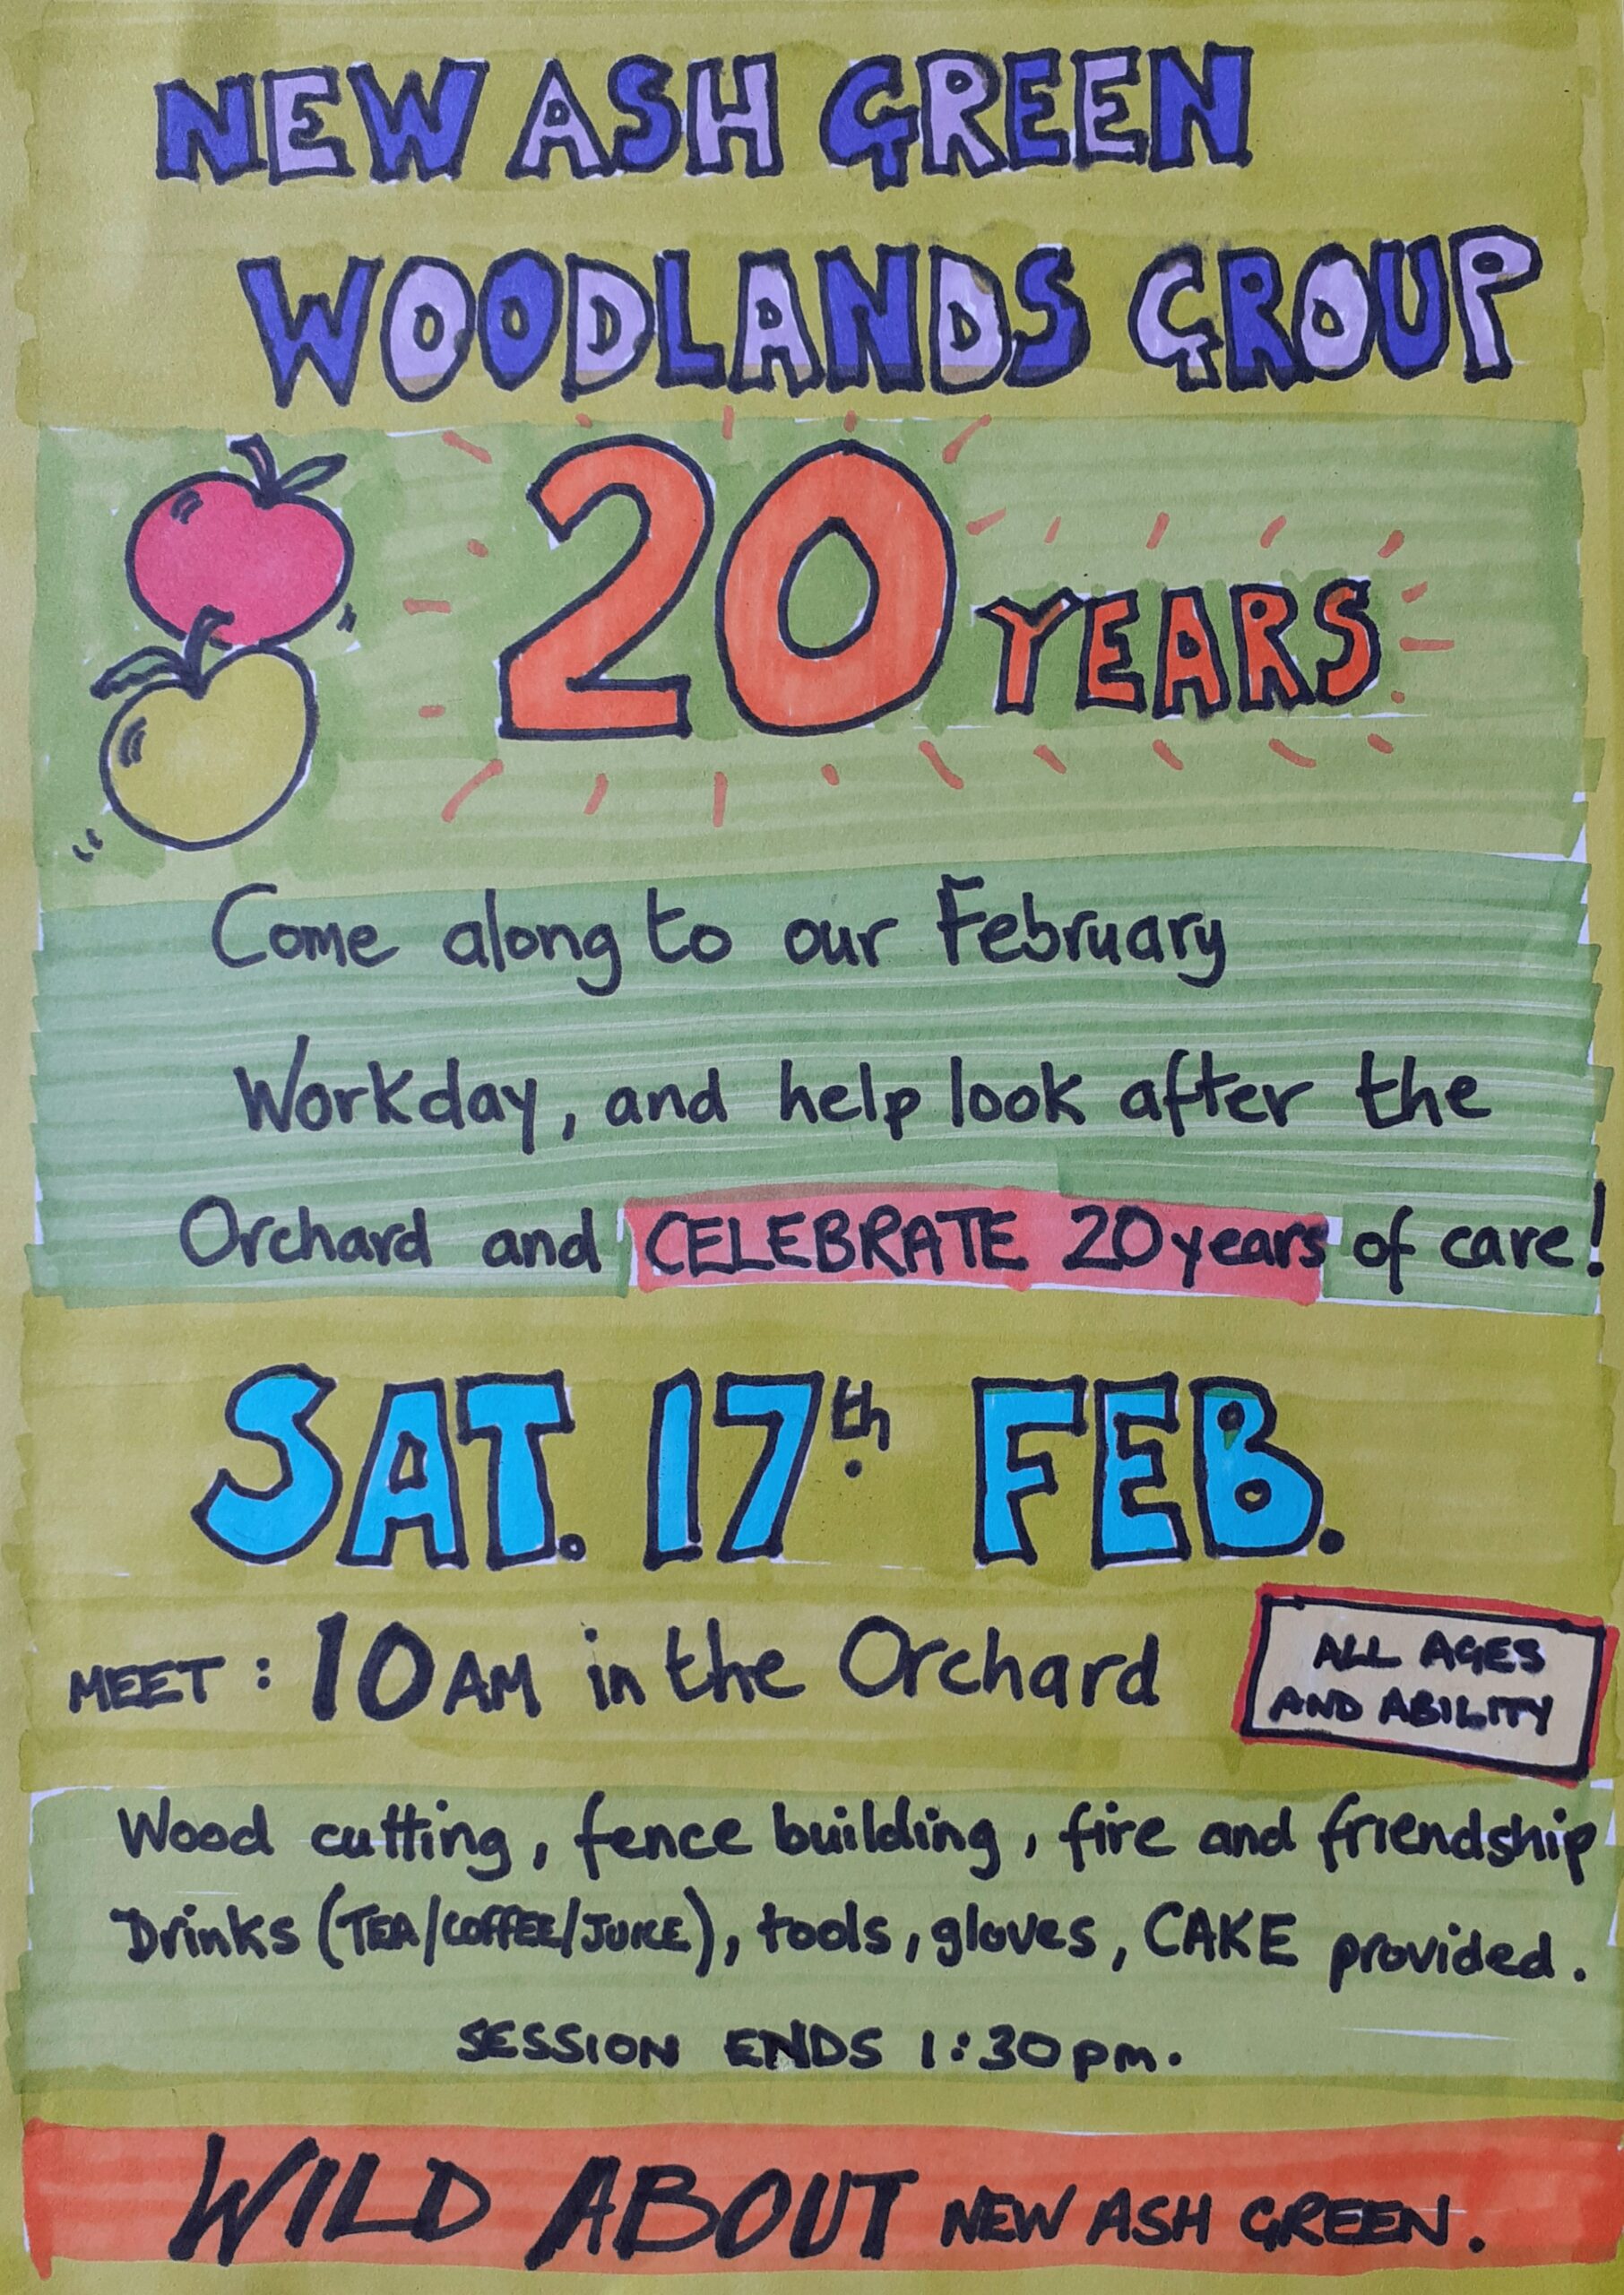 NEW ASH GREEN
WOODLANDS GROUP
20 YEARS
Come along to our February
Workday, and help look after the
Orchard and CELEBRATE 20 years of care!
SAT. 17th FEB.
MEET: 10AM in the Orchard
ALL AGES
AND ABILITY
Wood cutting, fence building, fire and friendship
Drinks (TEA/COFFEE/JUICE), tools, gloves, CAKE provided.
SESSION ENDS 1:30pm.
WILD ABOUT NEW ASH GREEN.